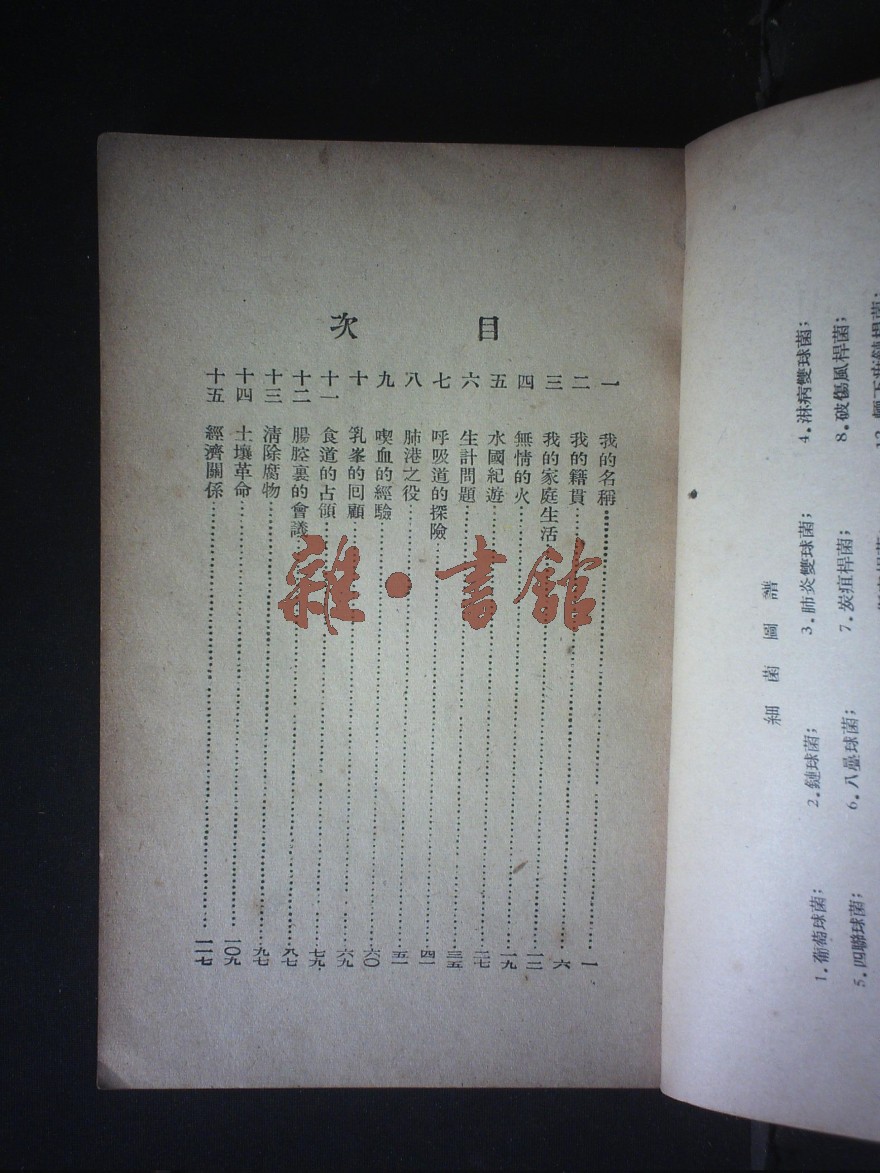 目次
一 我的名稱 一
二 我的籍貫 六
三 我的家庭生活 一二
四 無情的火 一九
五 水國紀遊 二七
六 生計問題 三五
七 呼吸道的探險 四一
八 肺港之役 五一
九 喫血的經驗 六〇
十 乳峯的回顧 六九
十一 食道的占領 七九
十二 腸腔裏的會議 八七
十三 清除腐物 九七
十四 土壤革命 一〇九
十五 經濟關係 一一七
雜·書館
細菌圖譜
1. 葡萄球菌; 2. 鏈球菌; 3. 肺炎雙球菌; 4. 淋病雙球菌;
5. 四聯球菌; 6. 八疊球菌; 7. 炭疽桿菌; 8. 破傷風桿菌;